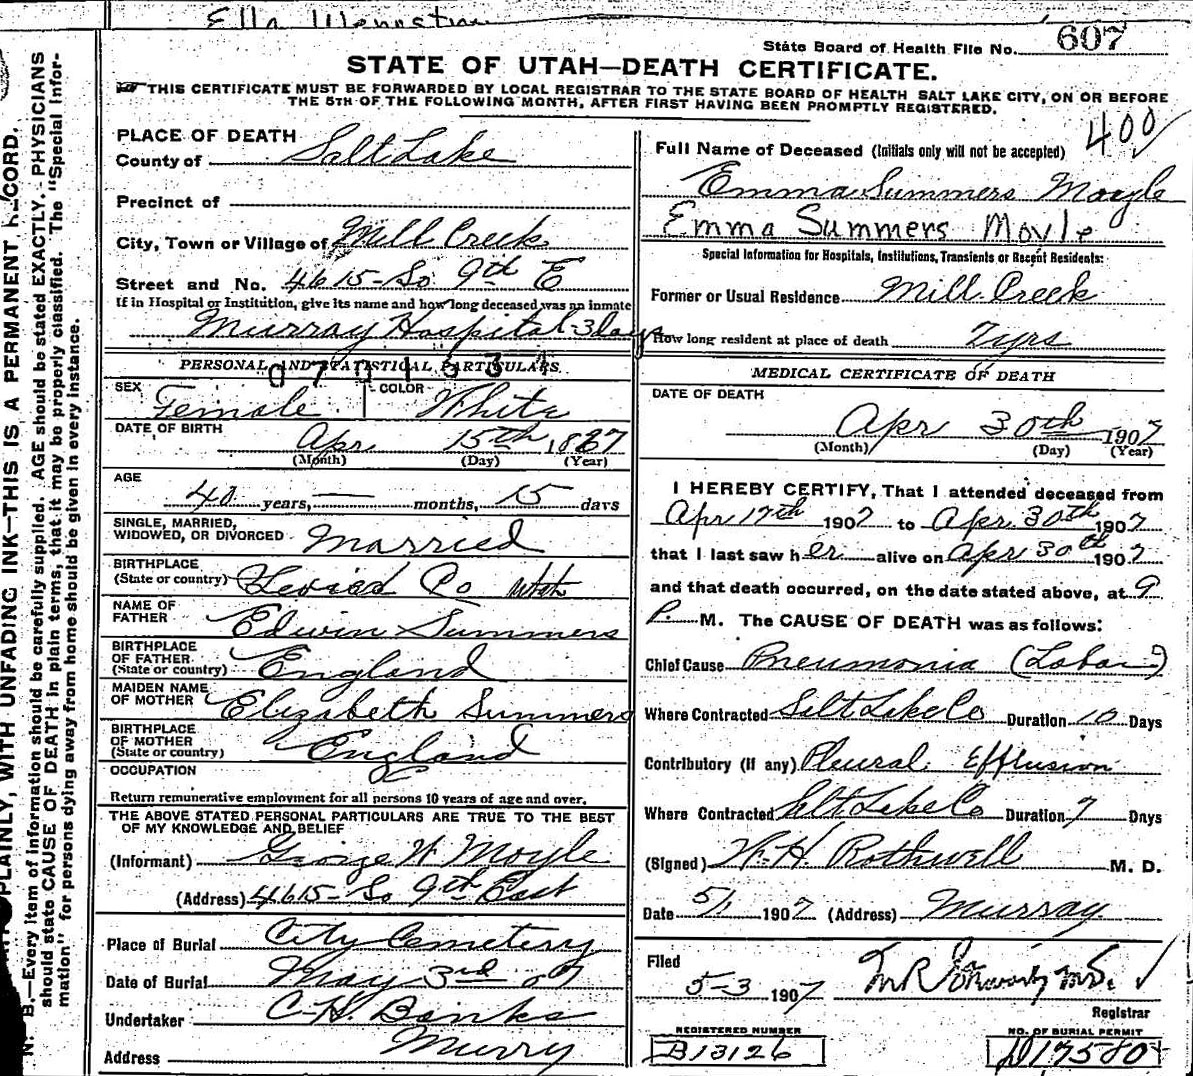 Ella
State Board of Health File No. 607
STATE OF UTAH—DEATH CERTIFICATE.
THIS CERTIFICATE MUST BE FORWARDED BY LOCAL REGISTRAR TO THE STATE BOARD OF HEALTH SALT LAKE CITY, ON OR BEFORE
THE 5TH OF THE FOLLOWING MONTH, AFTER FIRST HAVING BEEN PROMPTLY REGISTERED.
PLAINLY, WITH UNFADING INK—THIS IS A PERMANENT
N. B.—Every item of information should be carefully supplied. AGE should be stated EXACTLY. PHYSICIANS
should state CAUSE OF DEATH in plain terms, that it may be properly classified. The "Special Infor-
mation" for persons dying away from home should be given in every instance.
PLACE OF DEATH
County of Salt Lake
Precinct of
City, Town or Village of Mill Creek
Street and No. 4615-So 9th E
If in Hospital or Institution, give its name and how long deceased was an inmate
Murray Hospital-3 days
PERSONAL AND STATISTICAL PARTICULARS
SEX Female COLOR White
DATE OF BIRTH Apr 15th, 1867
(Month) (Day) (Year)
AGE
40 years, — months, 15 days
SINGLE, MARRIED,
WIDOWED, OR DIVORCED Married
BIRTHPLACE
(State or country) Co Utah
NAME OF
FATHER Edwin Summers
BIRTHPLACE
OF FATHER
(State or country) England
MAIDEN NAME
OF MOTHER Elizabeth Summers
BIRTHPLACE
OF MOTHER
(State or country) England
OCCUPATION
Return remunerative employment for all persons 10 years of age and over.
THE ABOVE STATED PERSONAL PARTICULARS ARE TRUE TO THE BEST
OF MY KNOWLEDGE AND BELIEF
(Informant) George H Moyle
(Address) 4615- So 9th East
Place of Burial City Cemetery
Date of Burial May 3rd 07
Undertaker C. H. Banks
Address Murry
400
Full Name of Deceased (Initials only will not be accepted)
Emma Summers Moyle
Emma Summers Moyle
Special Information for Hospitals, Institutions, Transients or Recent Residents:
Former or Usual Residence Mill Creek
How long resident at place of death 7 yrs
MEDICAL CERTIFICATE OF DEATH
DATE OF DEATH
Apr 30th 1907
(Month) (Day) (Year)
I HEREBY CERTIFY, That I attended deceased from
Apr 17th 1907 to Apr. 30th 1907
that I last saw her alive on Apr 30th 1907
and that death occurred, on the date stated above, at 9
P. M. The CAUSE OF DEATH was as follows:
Chief Cause Pneumonia (Lobar)
Where Contracted Salt Lake Co Duration 10 Days
Contributory (if any) Pleural Efflusion
Where Contracted Salt Lake Co Duration 7 Days
(Signed) H. Rothwell M. D.
Date 5/1 1907 (Address) Murray
Filed
5-3 1907
Registrar
REGISTERED NUMBER
B13126
NO. OF BURIAL PERMIT
D17580